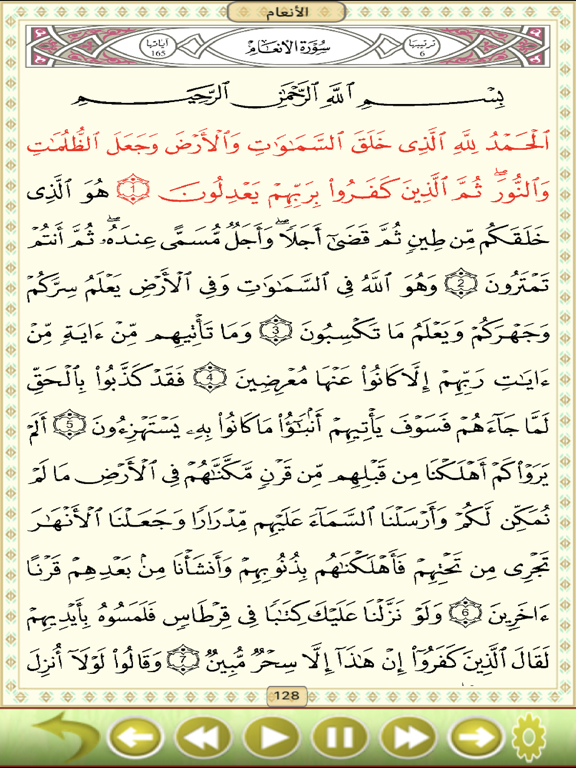 الأنعام
ترتيبها
6
سُورَةُ الأَنعَامِ
آياتها
165
بِسْمِ ٱللَّهِ ٱلرَّحْمَٰنِ ٱلرَّحِيمِ
ٱلْحَمْدُ لِلَّهِ ٱلَّذِى خَلَقَ ٱلسَّمَٰوَٰتِ وَٱلْأَرْضَ وَجَعَلَ ٱلظُّلُمَٰتِ
وَٱلنُّورَ ۖ ثُمَّ ٱلَّذِينَ كَفَرُوا۟ بِرَبِّهِمْ يَعْدِلُونَ ١ هُوَ ٱلَّذِى
خَلَقَكُم مِّن طِينٍ ثُمَّ قَضَىٰٓ أَجَلًا ۖ وَأَجَلٌ مُّسَمًّى عِندَهُۥ ۖ ثُمَّ أَنتُمْ
تَمْتَرُونَ 2 وَهُوَ ٱللَّهُ فِى ٱلسَّمَٰوَٰتِ وَفِى ٱلْأَرْضِ يَعْلَمُ سِرَّكُمْ
وَجَهْرَكُمْ وَيَعْلَمُ مَا تَكْسِبُونَ 3 وَمَا تَأْتِيهِم مِّنْ ءَايَةٍ مِّنْ
ءَايَٰتِ رَبِّهِمْ إِلَّا كَانُوا۟ عَنْهَا مُعْرِضِينَ 4 فَقَدْ كَذَّبُوا۟ بِٱلْحَقِّ
لَمَّا جَآءَهُمْ فَسَوْفَ يَأْتِيهِمْ أَنۢبَٰٓؤُا۟ مَا كَانُوا۟ بِهِۦ يَسْتَهْزِءُونَ 5 أَلَمْ
يَرَوْا۟ كَمْ أَهْلَكْنَا مِن قَبْلِهِم مِّن قَرْنٍ مَّكَّنَّٰهُمْ فِى ٱلْأَرْضِ مَا لَمْ
نُمَكِّن لَّكُمْ وَأَرْسَلْنَا ٱلسَّمَآءَ عَلَيْهِم مِّدْرَارًا وَجَعَلْنَا ٱلْأَنْهَٰرَ
تَجْرِى مِن تَحْتِهِمْ فَأَهْلَكْنَٰهُم بِذُنُوبِهِمْ وَأَنشَأْنَا مِنۢ بَعْدِهِمْ قَرْنًا
ءَاخَرِينَ 6 وَلَوْ نَزَّلْنَا عَلَيْكَ كِتَٰبًا فِى قِرْطَاسٍ فَلَمَسُوهُ بِأَيْدِيهِمْ
لَقَالَ ٱلَّذِينَ كَفَرُوٓا۟ إِنْ هَٰذَآ إِلَّا سِحْرٌ مُّبِينٌ 7 وَقَالُوا۟ لَوْلَآ أُنزِلَ
128